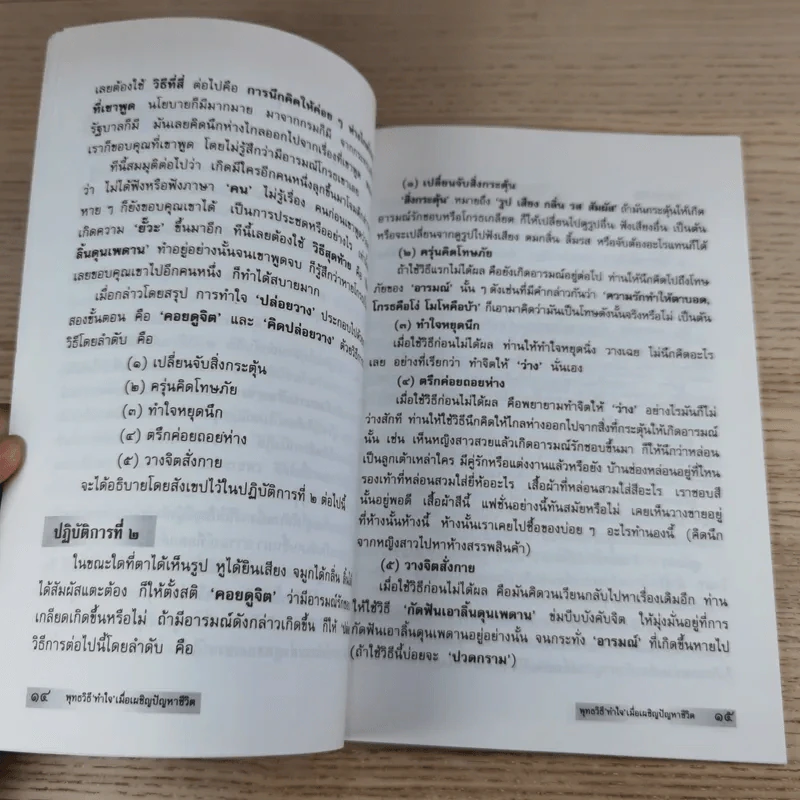 เลยต้องใช้ วิธีที่สี่ ต่อไปคือ การนึกคิดให้ค่อย ๆ
ที่เขาพูด นโยบายก็มีมากมาย มาจากกรมก็มี
รัฐบาลก็มี มันเลยคิดนึกห่างไกลออกไปจากเรื่องที่เขาพูด
เราก็ขอบคุณที่เขาพูด โดยไม่รู้สึกว่ามีอารมณ์โกรธเขาเลย
ทีนี้สมมุติต่อไปว่า เกิดมีใครอีกคนหนึ่งลุกขึ้นมา
ว่า ไม่ได้ฟังหรือฟังภาษา 'คน' ไม่รู้เรื่อง คนก่อนเขา
หาย ๆ ก็ยังขอบคุณเขาได้ เป็นการประชดหรืออย่างไร
เกิดความ 'ยั๊วะ' ขึ้นมาอีก ทีนี้เลยต้องใช้ วิธีสุดท้าย คือ
ลิ้นดุนเพดาน ทำอยู่อย่างนั้นจนเขาพูดจบ ก็รู้สึกว่าหายโกรธ
เลยขอบคุณเขาไปอีกคนหนึ่ง ก็ทำได้สบายมาก
เมื่อกล่าวโดยสรุป การทำใจ 'ปล่อยวาง' ประกอบไปด้วย
สองขั้นตอน คือ 'คอยดูจิต' และ 'คิดปล่อยวาง' ด้วย
วิธีโดยลำดับ คือ
(๑) เปลี่ยนจับสิ่งกระตุ้น
(๒) ครุ่นคิดโทษภัย
(๓) ทำใจหยุดนึก
(๔) ตรึกค่อยถอยห่าง
(๕) วางจิตสั่งกาย
จะได้อธิบายโดยสังเขปไว้ในปฏิบัติการที่ ๒ ต่อไปนี้
ปฏิบัติการที่ ๒
ในขณะใดที่ตาได้เห็นรูป หูได้ยินเสียง จมูกได้กลิ่น
ได้สัมผัสแตะต้อง ก็ให้ตั้งสติ 'คอยดูจิต' ว่ามีอารมณ์รักชอบ
เกลียดเกิดขึ้นหรือไม่ ถ้ามีอารมณ์ดังกล่าวเกิดขึ้น ก็ให้
วิธีการต่อไปนี้โดยลำดับ คือ
๑๔ พุทธวิธี'ทำใจ'เมื่อเผชิญปัญหาชีวิต
(๑) เปลี่ยนจับสิ่งกระตุ้น
'สิ่งกระตุ้น' หมายถึง 'รูป เสียง กลิ่น รส สัมผัส' ถ้ามันกระตุ้นให้เกิด
อารมณ์รักชอบหรือโกรธเกลียด ก็ให้เปลี่ยนไปดูรูปอื่น ฟังเสียงอื่น เป็นต้น
หรือจะเปลี่ยนจากดูรูปไปฟังเสียง ดมกลิ่น ลิ้มรส หรือจับต้องอะไรแทนก็ได้
(๒) ครุ่นคิดโทษภัย
ถ้าใช้วิธีแรกไม่ได้ผล คือยังเกิดอารมณ์อยู่ต่อไป ท่านให้นึกคิดไปถึงโทษ
ภัยของ 'อารมณ์' นั้น ๆ ดังเช่นที่มีคำกล่าวกันว่า 'ความรักทำให้ตาบอด,
โกรธคือโง่ โมโหคือบ้า' ก็เอามาคิดว่ามันเป็นโทษดังนั้นจริงหรือไม่ เป็นต้น
(๓) ทำใจหยุดนึก
เมื่อใช้วิธีก่อนไม่ได้ผล ท่านให้ทำใจหยุดนิ่ง วางเฉย ไม่นึกคิดอะไร
เลย อย่างที่เรียกว่า ทำจิตให้ 'ว่าง' นั่นเอง
(๔) ตรึกค่อยถอยห่าง
เมื่อใช้วิธีก่อนไม่ได้ผล คือพยายามทำจิตให้ 'ว่าง' อย่างไรมันก็ไม่
ว่างสักที ท่านให้ใช้วิธีนึกคิดให้ไกลห่างออกไปจากสิ่งที่กระตุ้นให้เกิดอารมณ์
นั้น เช่น เห็นหญิงสาวสวยแล้วเกิดอารมณ์รักชอบขึ้นมา ก็ให้นึกว่าหล่อน
เป็นลูกเต้าเหล่าใคร มีคู่รักหรือแต่งงานแล้วหรือยัง บ้านช่องหล่อนอยู่ที่ไหน
รองเท้าที่หล่อนสวมใส่ยี่ห้ออะไร เสื้อผ้าที่หล่อนสวมใส่สีอะไร เราชอบสี
นั้นอยู่พอดี เสื้อผ้าสีนี้ แฟชั่นอย่างนี้ทันสมัยหรือไม่ เคยเห็นวางขายอยู่
ที่ห้างนั้นห้างนี้ ห้างนั้นเราเคยไปซื้อของบ่อย ๆ อะไรทำนองนี้ (คิดนึก
จากหญิงสาวไปหาห้างสรรพสินค้า)
(๕) วางจิตสั่งกาย
เมื่อใช้วิธีก่อนไม่ได้ผล คือมันคิดวนเวียนกลับไปหาเรื่องเดิมอีก ท่าน
ให้ใช้วิธี 'กัดฟันเอาลิ้นดุนเพดาน' ข่มบีบบังคับจิต ให้มุ่งมั่นอยู่ที่การ
กัดฟันเอาลิ้นดุนเพดานอยู่อย่างนั้น จนกระทั่ง 'อารมณ์' ที่เกิดขึ้นหายไป
(ถ้าใช้วิธีนี้บ่อยจะ 'ปวดกราม')
พุทธวิธี'ทำใจ'เมื่อเผชิญปัญหาชีวิต ๑๕